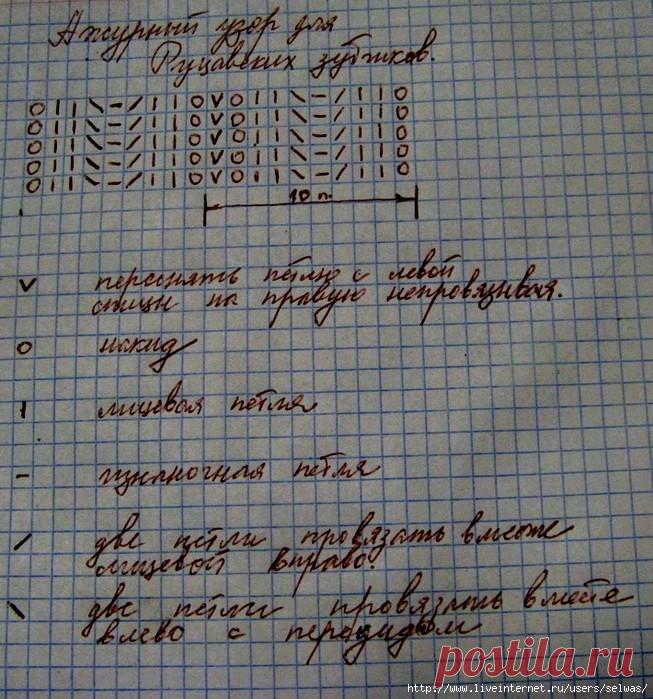 Ажурный узор для
Руцавских зубчиков.
O I I \ - / I I O V O I I \ - / I I O
O I I \ - / I I O V O I I \ - / I I O
O I I \ - / I I O V O I I \ - / I I O
O I I \ - / I I O V O I I \ - / I I O
O I I \ - / I I O V O I I \ - / I I O
10 п.
V переснять петлю с левой
спицы на правую непровязывая.
O накид
I лицевая петля
- изнаночная петля
/ две петли провязать вместе
лицевой вправо.
\ две петли провязать вместе
влево с передидом
postila.ru
http://www.liveinternet.ru/users/selwas/